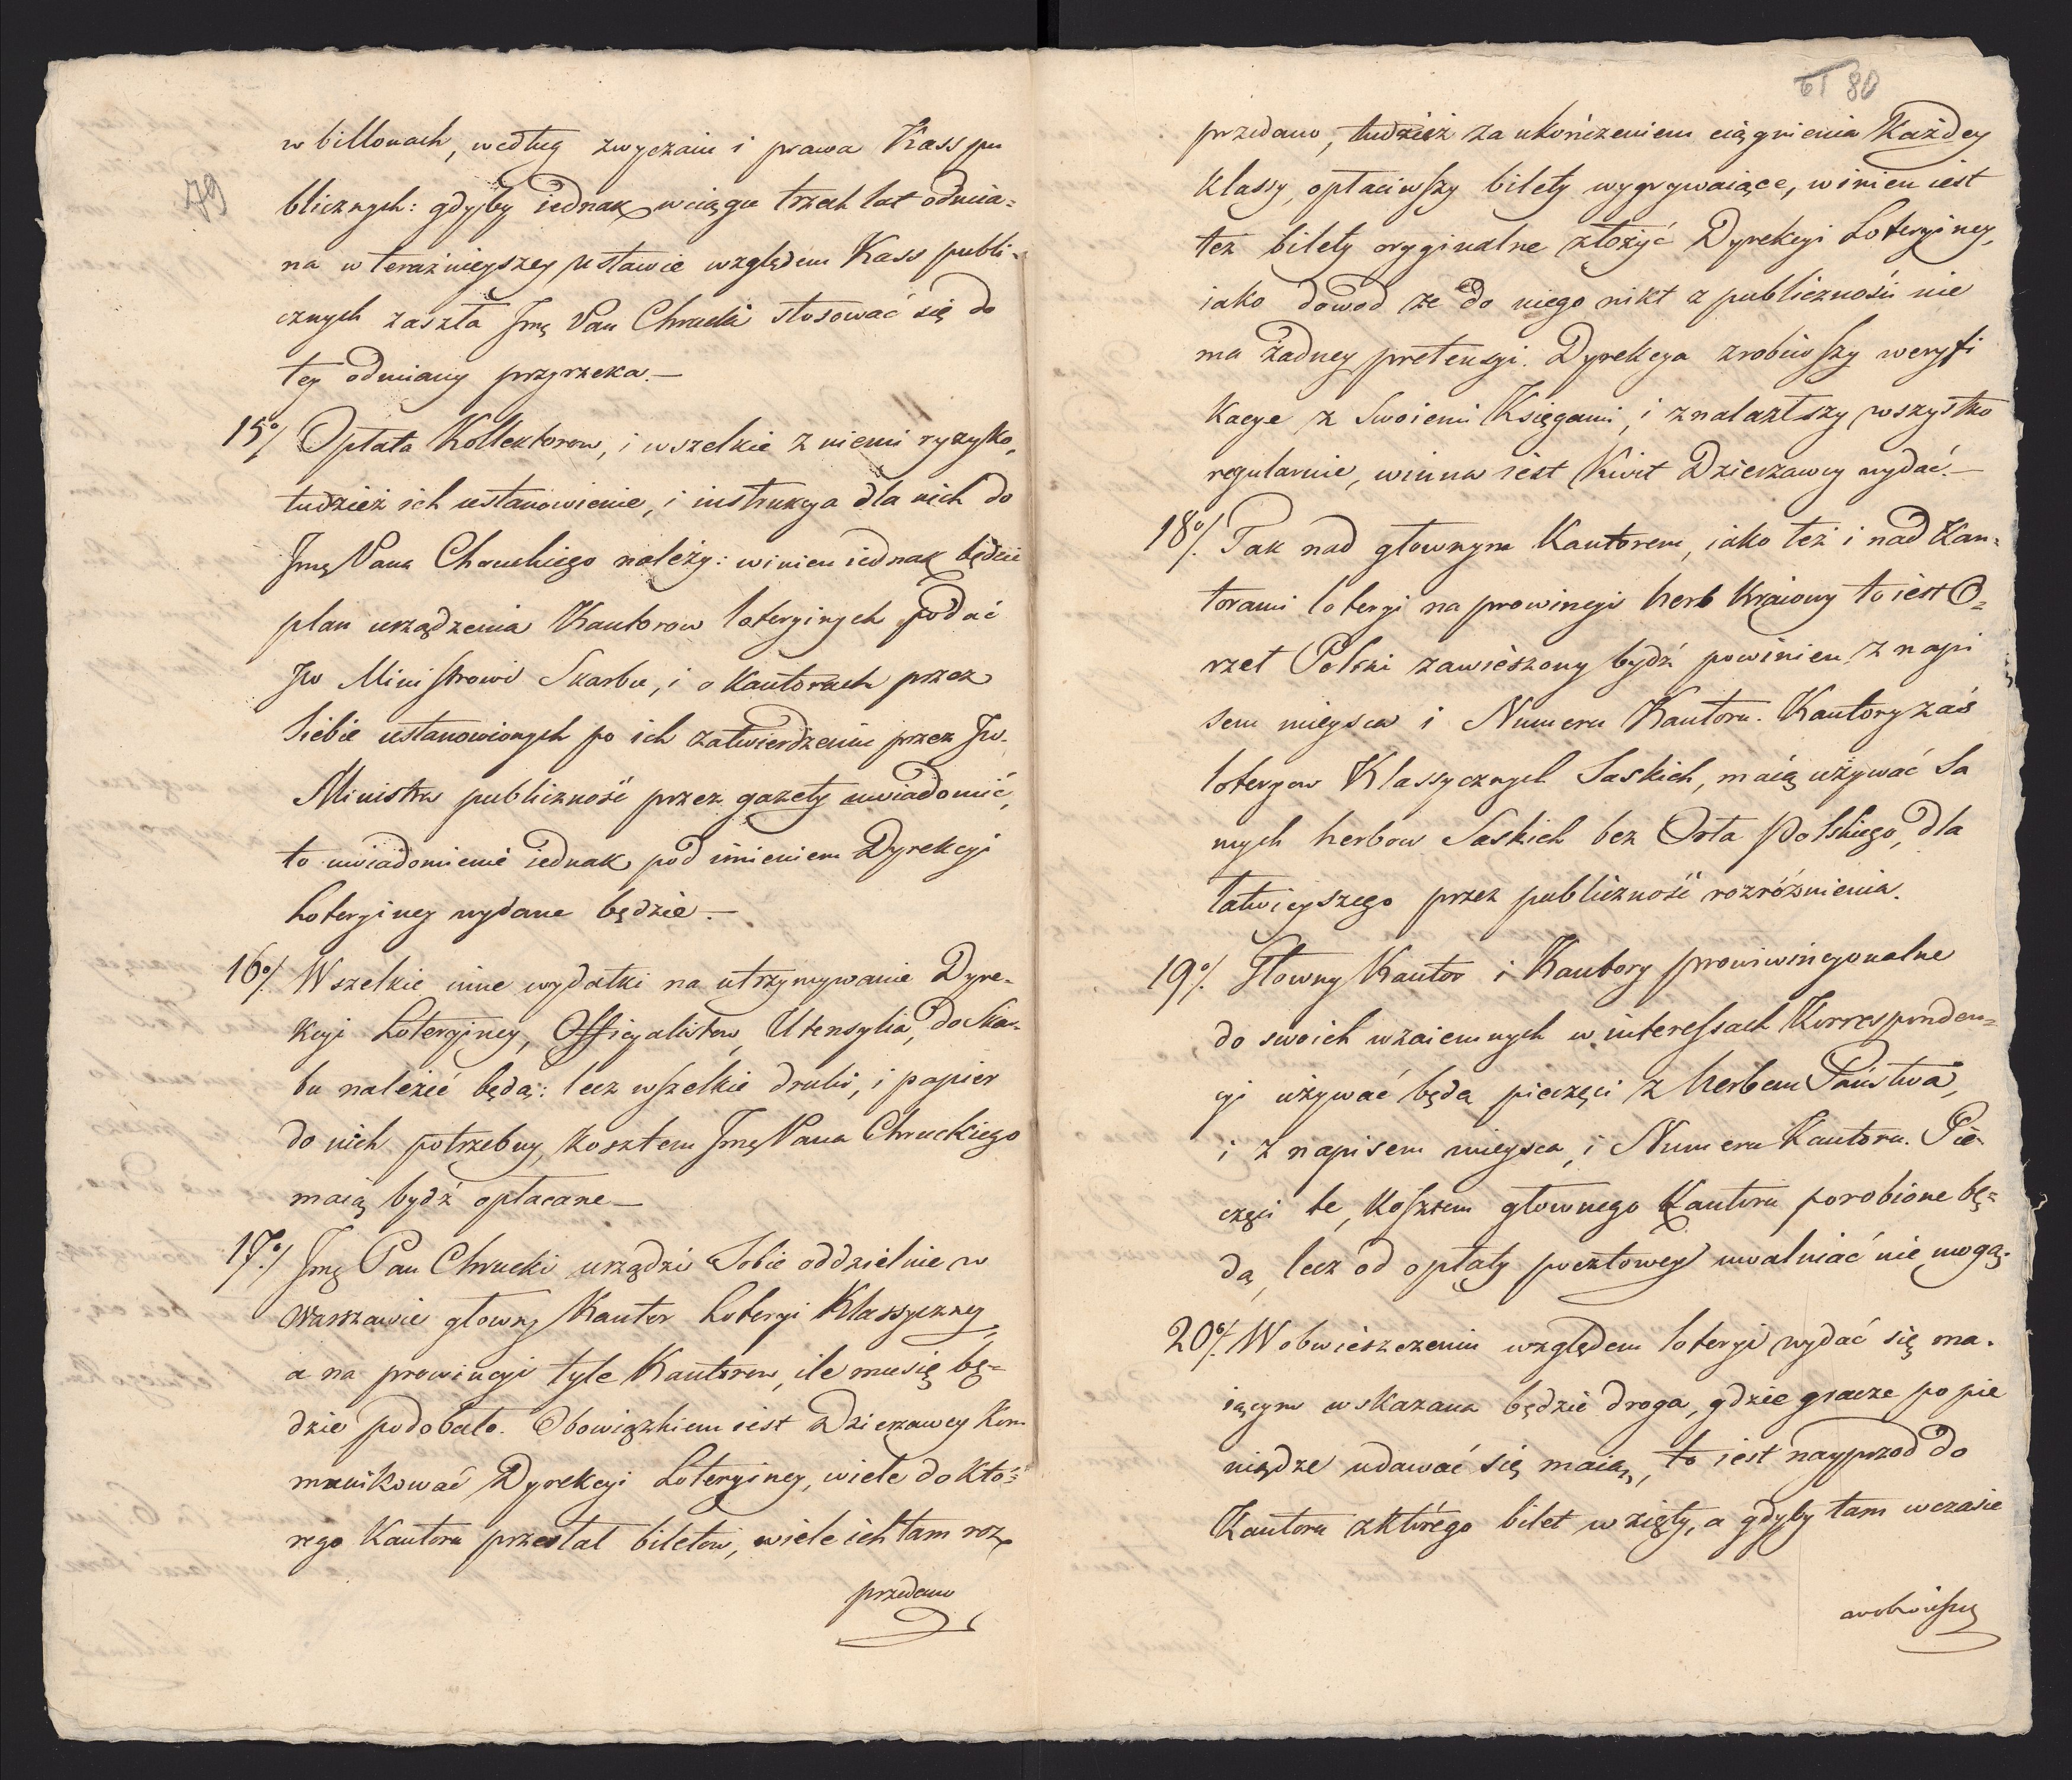 79
w billonach, według zwyczaiu i prawa Kass pu
blicznych: gdyby iednak wciągu trzech lat odmia-
na w teraźnieyszey ustawie względem Kass publi-
cznych zaszła Jmę Pan Chrucki stosować się do
tey odmiany przyrzeka.—
15o/ Opłata Kollektorow, i wszelkie z niemi ryzyko,
tudzież ich ustanowienie, i instrukcya dla nich do
Jmę Pana Chruckiego należy: winien iednak będzie
plan urządzenia Kantorow loteryinych podać
JW Ministrowi Skarbu, i o Kantorach przez
Siebie ustanowionych po ich zatwierdzeniu przez JW.
Ministra publiczność przez gazety uwiadomić,
to uwiadomienie iednak pod imieniem Dyrekcyi
Loteryiney wydane będzie.—
16o/ Wszelkie inne wydatki na utrzymywanie Dyre-
kcyi Loteryiney, Officyalistow, Utensylia, do Skar-
bu należeć będą: lecz wszelkie druki, i papier
do nich potrzebny, kosztem Jmę Pana Chruckiego
maią bydź opłacane—
17o/ Jmę Pan Chrucki urządzi Sobie oddzielnie w
Warszawie głowny Kantor Loteryi Klassyczney,
a na prowincyi tyle Kantorow, ile mu się bę-
dzie podobało. Obowiązkiem iest Dzierzawcy Kom
munikować Dyrekcyi Loteryiney, wiele do któ-
rego Kantoru przesłał biletow, wiele ich tam roz
przedano
61 80
przedano, tudzież za ukończeniem ciągnienia Każdey
Klassy, opłaciwszy bilety wygrywaiące, winien iest
też bilety oryginalne złożyć Dyrekcyi Loteryiney,
iako dowod że do niego nikt z publiczności nie
ma żadney pretensyi. Dyrekcya zrobiwszy weryfi
kacye z Swoiemi Księgami, i znalazłszy wszystko
regularnie, winna iest Kwit Dzierzawcy wydać.—
18o/. Tak nad głownym Kantorem, iako też i nad Kan-
torami loteryi na prowincyi herb Kraiowy to iest O-
rzeł Polski zawieszony bydź powinien z napi
sem mieysca i Numeru Kantoru. Kantory zaś
loteryow Klassycznych Saskich, maią używać Sa
mych herbow Saskich bez Orła Polskiego, dla
łatwieyszego przez publiczność rozróżnienia.
19o/. Głowny Kantor i Kantory prowiwincyonalne
do swoich wzaiemnych w interessach Korresponden-
cyi używać będą pieczęci z herbem Państwa,
i z napisem mieysca, i Numeru Kantoru. Pie-
częci te, kosztem głownego Kantoru porobione bę-
dą, lecz od opłaty pocztowey uwalniać nie mogą.
20o/. W obwieszczeniu względem loteryi wydać się ma-
iącym wskazana będzie droga, gdzie gracze po pie
niądze udawać się maią, to iest nayprzod do
Kantoru z którego bilet wzięty, a gdyby tam wczasie